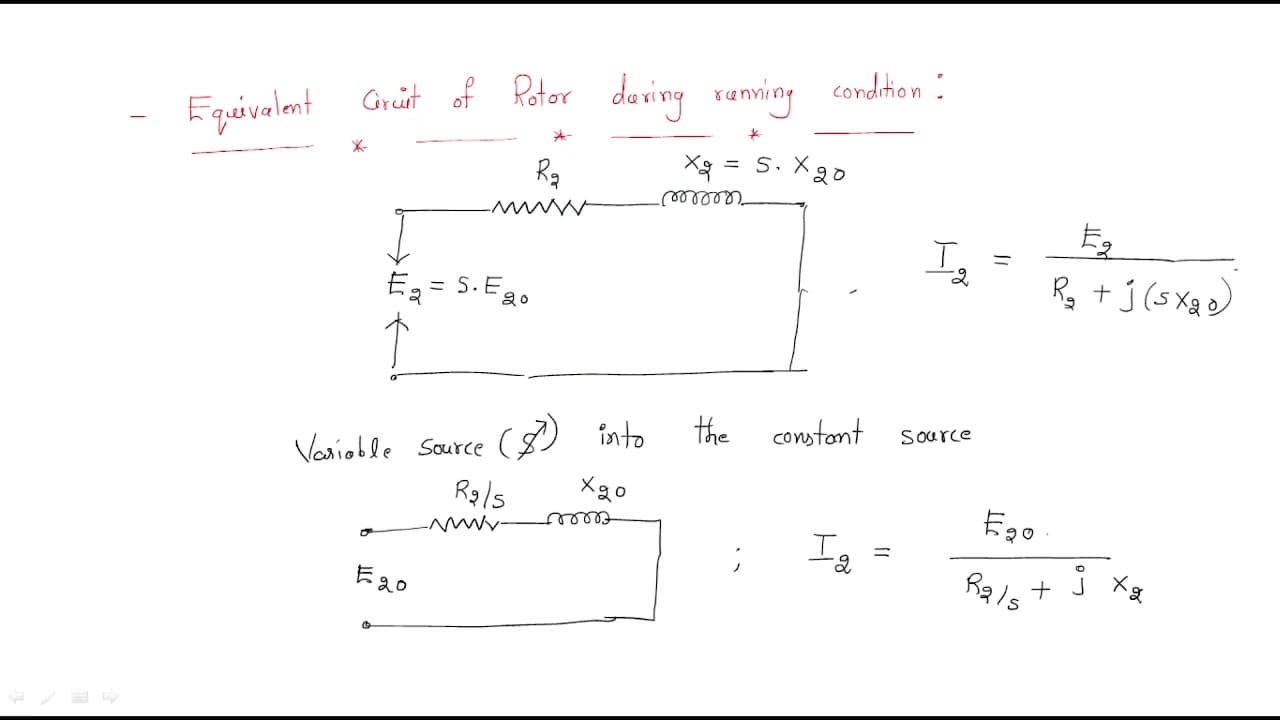 - Equivalent Circuit of Rotor during running condition:
R2
X2 = S. X20
E2 = S. E20
I2 = E2 / R2 + j(sX20)
Variable source (S) into the constant source
R2/s
X20
E20
; I2 = E20. / R2/s + j X2